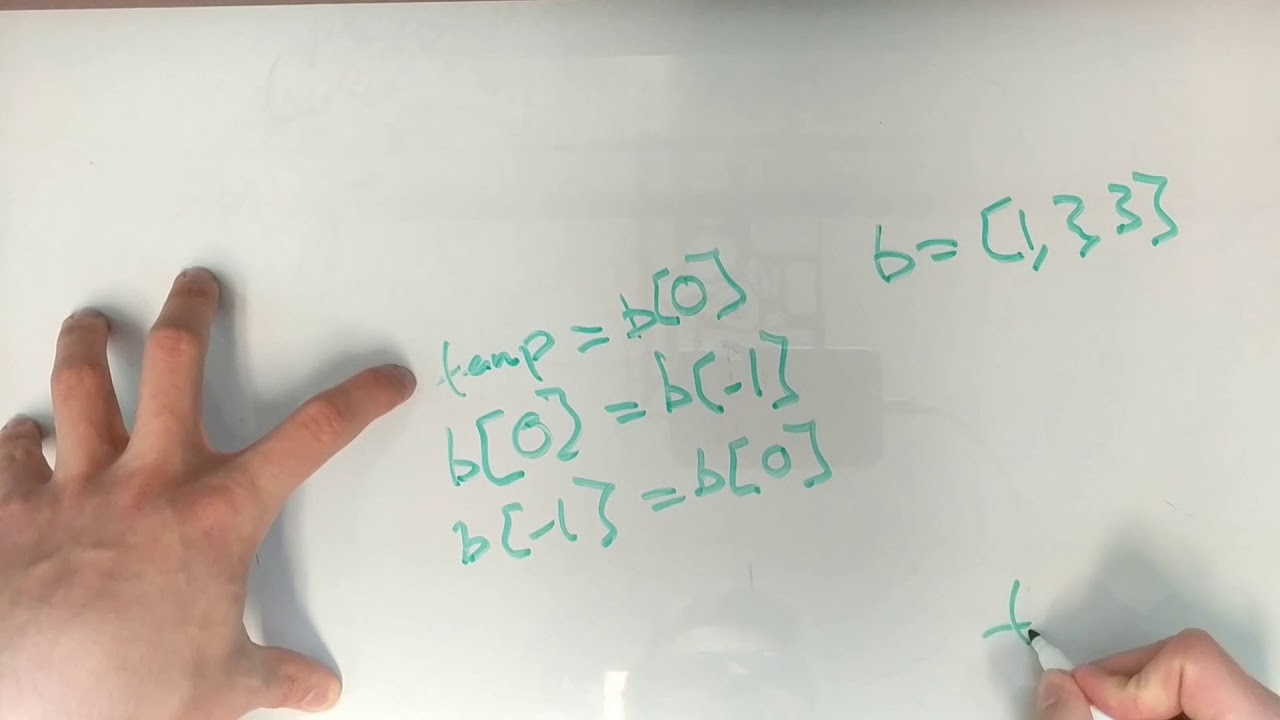 b = [1, 3, 3]
temp = b[0]
b[0] = b[-1]
b[-1] = b[0]
t